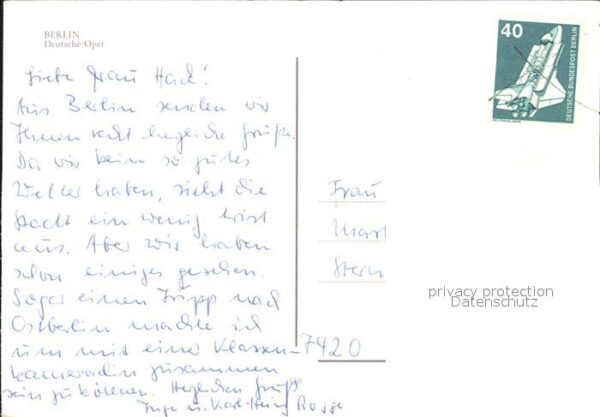 BERLIN
Deutsche Oper
Liebe Frau Hack!
Aus Berlin senden wir
Ihnen recht herzliche Grüße.
Da wir kein so gutes
Wetter haben, sieht die
Stadt ein wenig trist
aus. Aber wir haben
schon einiges gesehen.
Sogar einen Tripp nach
Ostberlin machte ich
um mit einer Klassen-
kameradin zusammen
sein zu können. Herzlichen Gruß
Inge u. Karl-Heinz
40
DEUTSCHE BUNDESPOST BERLIN
Frau
Stern
7420
privacy protection
Datenschutz